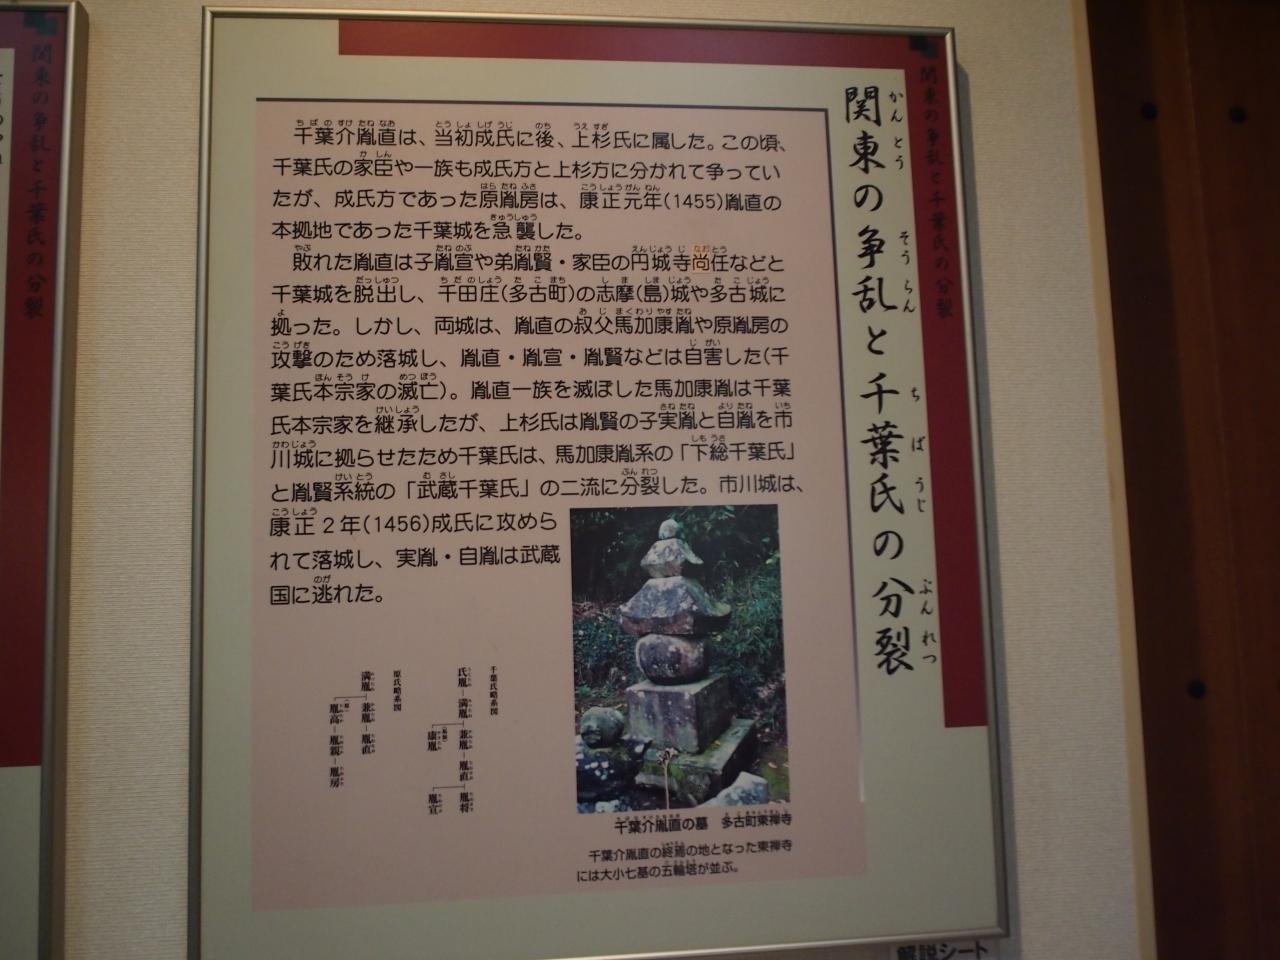 関東の争乱と千葉氏の分裂
関東の争乱と千葉氏の分裂
かんとう そうらん ちばうじ ぶんれつ
関東の争乱と千葉氏の分裂
千葉介胤直は、当初成氏に後、上杉氏に属した。この頃、
千葉氏の家臣や一族も成氏方と上杉方に分かれて争ってい
たが、成氏方であった原胤房は、康正元年(1455)胤直の
本拠地であった千葉城を急襲した。
敗れた胤直は子胤宣や弟胤賢・家臣の円城寺尚任などと
千葉城を脱出し、千田庄(多古町)の志摩(島)城や多古城に
拠った。しかし、両城は、胤直の叔父馬加康胤や原胤房の
攻撃のため落城し、胤直・胤宣・胤賢などは自害した(千
葉氏本宗家の滅亡)。胤直一族を滅ぼした馬加康胤は千葉
氏本宗家を継承したが、上杉氏は胤賢の子実胤と自胤を市
川城に拠らせたため千葉氏は、馬加康胤系の「下総千葉氏」
と胤賢系統の「武蔵千葉氏」の二流に分裂した。市川城は、
康正2年(1456)成氏に攻めら
れて落城し、実胤・自胤は武蔵
国に逃れた。
千葉氏略系図
氏胤－満胤－兼胤－胤直－胤将
康胤
胤宣
原氏略系図
満胤－兼胤－胤直
胤高－胤親－胤房
千葉介胤直の墓 多古町東禅寺
千葉介胤直の終焉の地となった東禅寺
には大小七基の五輪塔が並ぶ。
解説シート